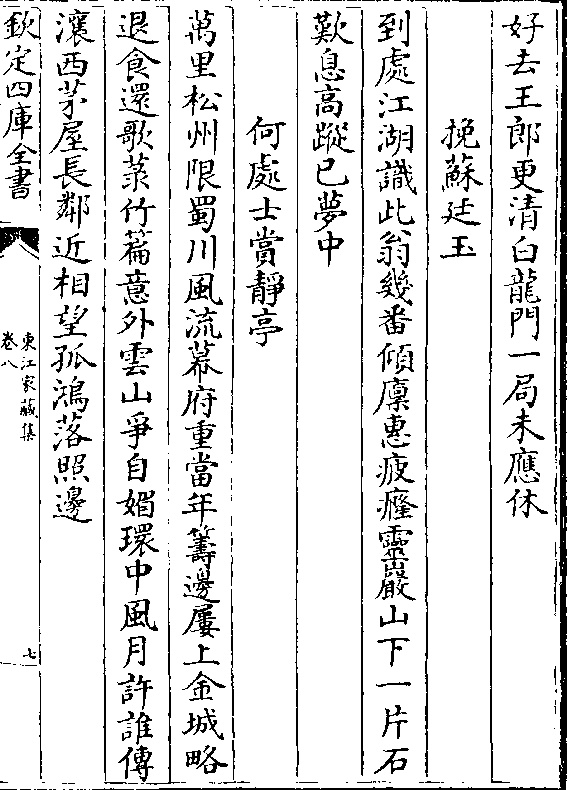 好去王郎更清白龍門一局未應休
挽蘇廷玉
到處江湖識此翁幾番傾廪惠疲癃靈巖山下一片石
歎息高蹤已夢中
何處士賞靜亭
萬里松州限蜀川風流幕府重當年籌邊屢上金城略
退食還歌菉竹篇意外雲山爭自媚環中風月許誰傳
瀼西茅屋長鄰近相望孤鴻落照邊
欽定四庫全書
東江家藏集
卷八
七